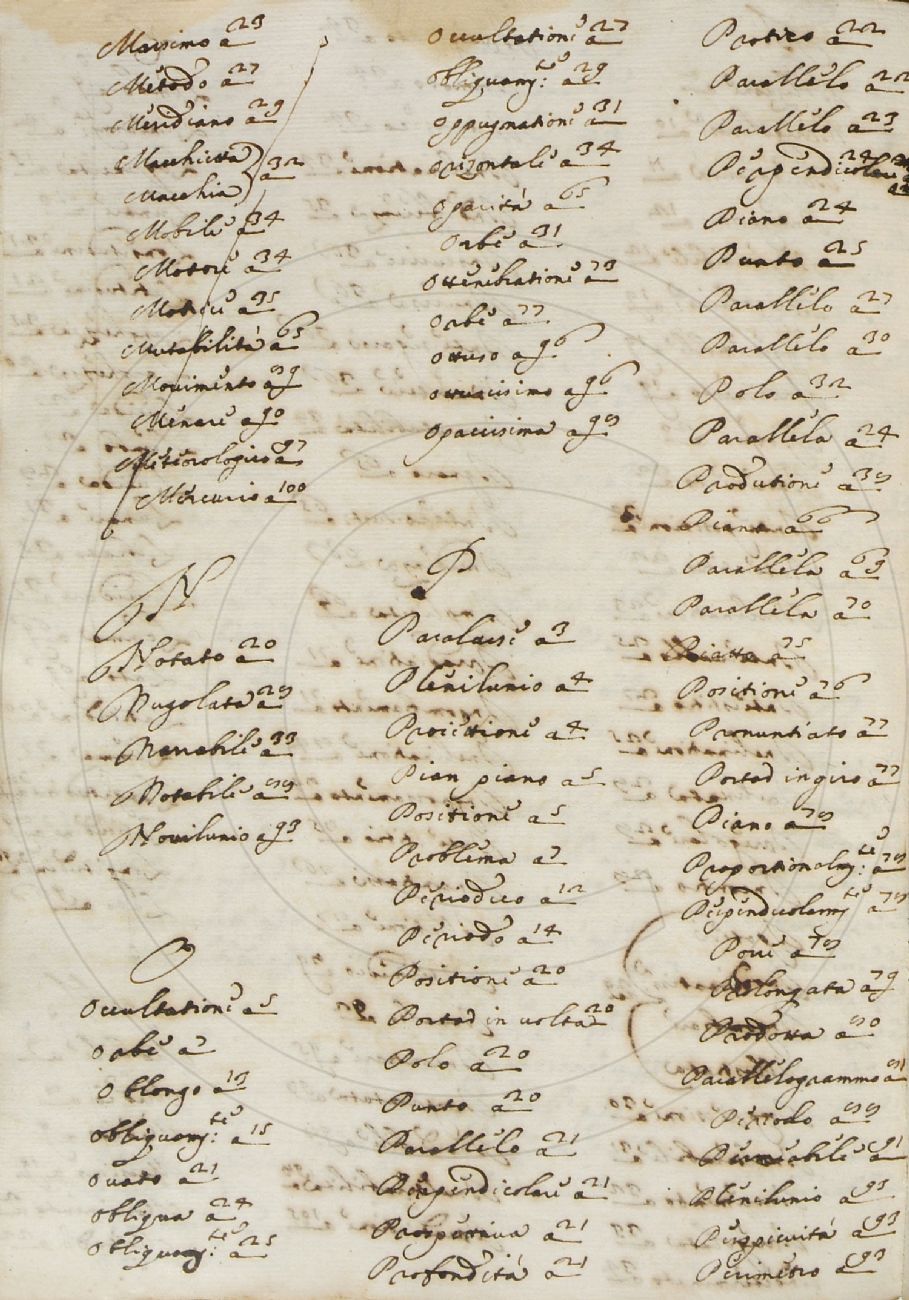 Massimo a 23
Metodo a 27
Meridiano a 29
Macchietta
Macchia a 32
Mobile a 34
Motore a 34
Motrice a 35
Mutabilità a 65
Movimento a 89
Menare a 90
Meteorologico a 97
Mercurio a 100
N
Notato a 20
Nugolata a
Notabile a
Novilunio a 93
O
Occultatione a 5
Orbe a 7
Oblongo a 13
Obliquamte: a 15
Ovato a 21
Obliqua a 24
Obliquamte: a 25
Occultatione a 27
Obliquamte: a 29
Oppugnatione a 31
Orizontale a 34
Opacità a 65
Orbe a 31
Ottenebratione a 73
Orbe a 77
Ottuso a 96
Ottusissimo a 96
Opacissima a
P
Paralasse a 3
Plenilunio a 4
Proiettione a 4
Pian piano a 5
Positione a 5
Problema a 7
Periodico a 12
Periodo a 14
Positione a 20
Portad in volta 20
Polo a 20
Punto a 20
Parallelo a 21
Perpendicolare a 21
Prospettiva a 21
Profondità a 21
Portico a 22
Parallelo a 22
Parallelo a 23
Perpendicolare 24
Piano a 24
Punto a 25
Parallelo a 27
Parallelo a 30
Polo a 32
Parallela a 24
Produtione a
Piano a 66
Parallela a 69
Parallela a 70
Piatta a 75
Positione a 76
Pronuntiato a 77
Portad in giro a 77
Piano a
Proportionalmte: a
Perpendicolarmte a
Pone a
Prolongata a 79
Prodotta a
Parallelogrammo a
Piccolo a
a 91
Plenilunio a 93
Perspicuità a 93
Perimetro a 93